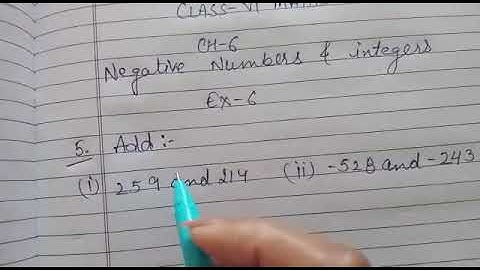 CLASS-VI
CH-6
Negative Numbers & integers
Ex-6
5. Add :-
(i) 259 and 214 (ii) -528 and -243